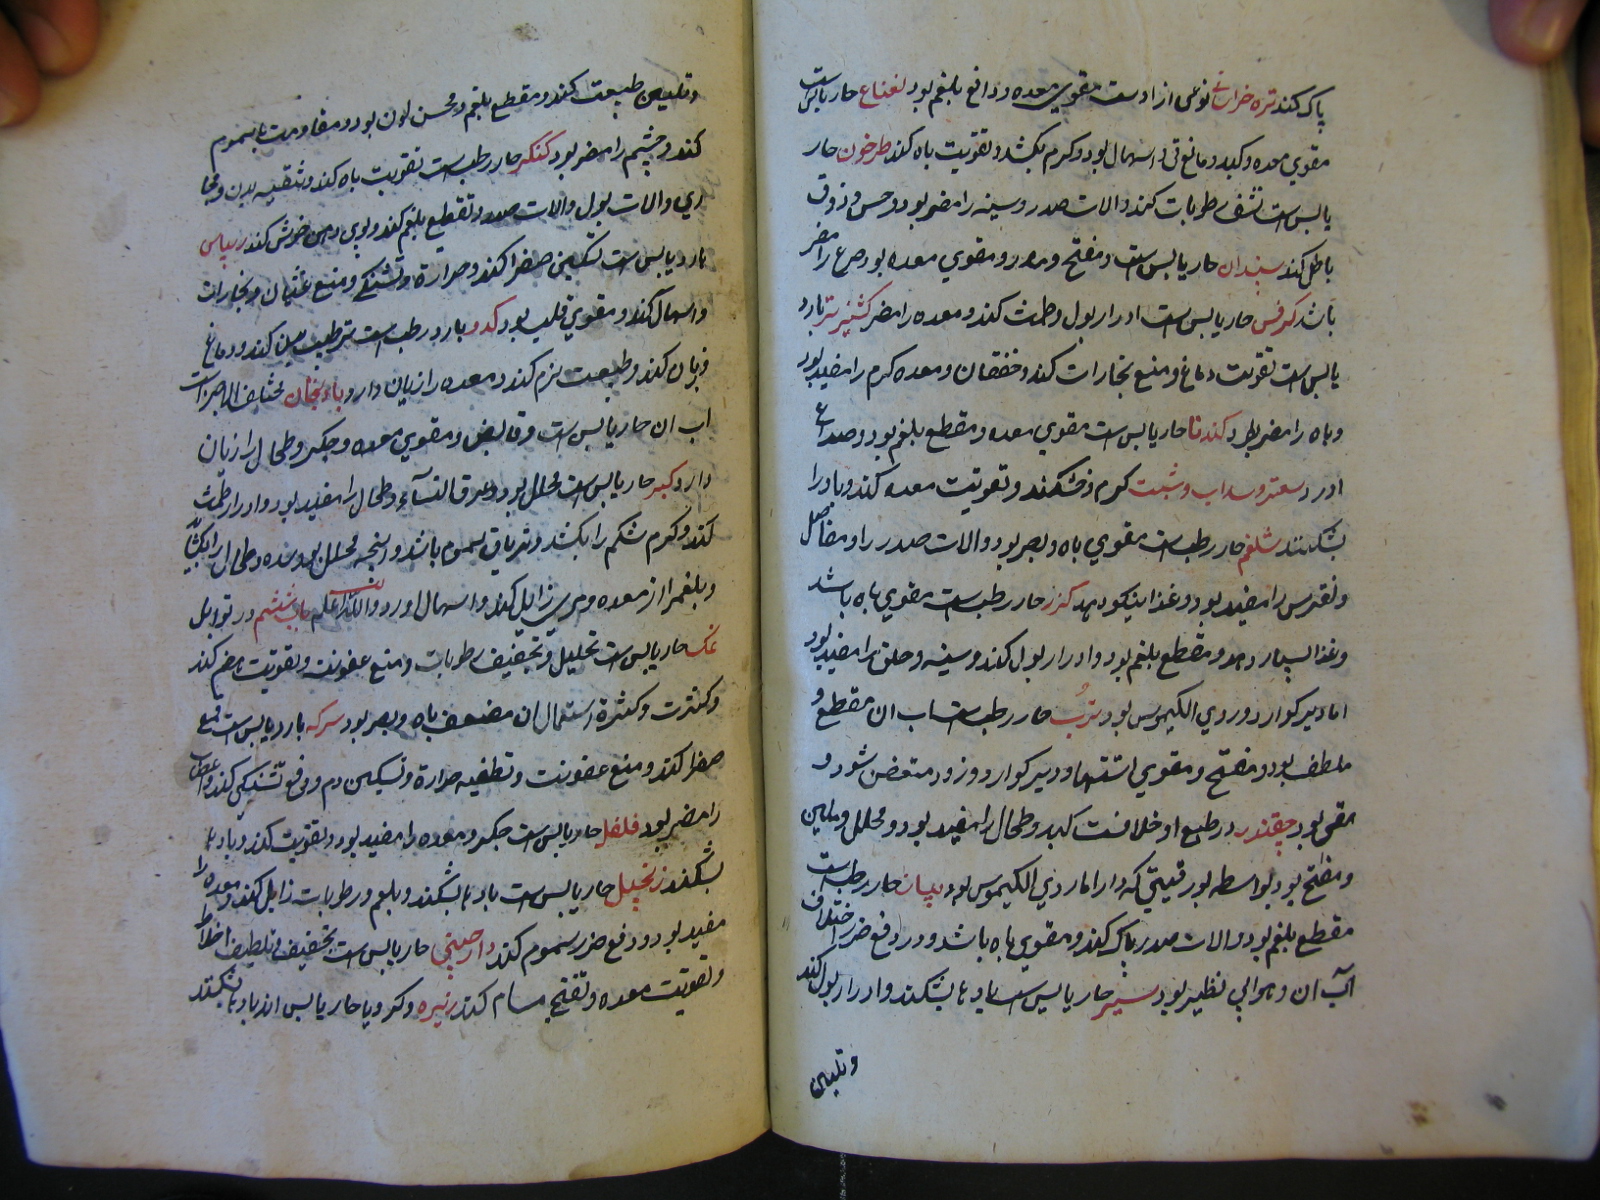 پاک کند تره خراسانی نوعی از اوست مقوی معده و دافع بلغم بود نعناع حار یابس است
مقوی معده و کبد و مانع قی و اسهال بود و کرم بکشد و تقویت باه کند طرخون حار
یابس است نشف رطوبات کند و الات صدر و سینه را مضر بود و حس ذوق
باطل کند سپندان حار یابس است و مفتح و مدر و مقوی معده بود صرع را مضر
باشد کرفس حار یابس است ادرار بول و طمث کند و معده را مضر کشنیز تر بارد
یابس است تقویت دماغ و منع بخارات کند و خفقان و معده کرم را مفید بود
و باه را مضر بود کندنا حار یابس است مقوی معده و مقطع بلغم بود و صداع
اورد سعتر و سداب و شبت کرم و خشکند و تقویت معده کند و باد را
بشکنند شلغم حار رطب است مقوی باه و بصر بود و الات صدر را و مفاصل
و نقرس را مفید بود و غذا نیکو دهد کزر حار رطب است مقوی باه باشد
و غذا بسیار دهد و مقطع بلغم بود و ادرار بول کند و سینه و حلق را مفید بود
اما دیر کوارد و ردی الکیموس بود ترب حار رطب است اب ان مقطع و
ملطف بود و مفتح و مقوی اشتها و دیر کوارد و زود متعفن شود و
مقی بود چقندر در طبع او خلافست کبد و طحال را مفید بود و محلل و ملین
و مفتح بود بواسطه بورقیتی که دارد اما ردی الکیموس بود پیاز حار رطب است
مقطع بلغم بود و الات صدر پاک کند و مقوی باه باشد و در دفع ضرر اختلاف
آب ان و هوا بی نظیر بود سیر حار یابس است بادها بشکند و ادرار بول کند
و تلیین
و تلیین طبیعت کند و مقطع بلغم و محسن لون بود و مقاومت با سموم
کند و چشم را مضر بود کنکر حار رطب است تقویت باه کند و تنقیه بدن و مجا
ری و الات بول و الات صدر و تقطیع بلغم کند و بوی دهن خوش کند ریباس
بارد یابس است تسکین صفرا کند و حرارة و تشنکی و منع غثیان و بخارات
و اسهال کند و مقوی قلب بود کدو بارد رطب است ترطیب بدن کند و دماغ
و زیان کند و طبیعت نرم کند و معده را زیان دارد بادنجان مختلف الاجزاست
اب ان حار یابس است و قابض و مقوی معده و جکر و طحال را زیان
دارد کبر حار یابس است محلل بود و عرق النسا و طحال را مفید بود و ادرار طمث
کند و کرم شکم را بکشد و تریاق سموم باشد و انچه محلل بود سده و طحال را بکشاید
و بلغم را از معده و مری زایل کند و اسهال اورد والله اعلم باب ششم در توابل
نمک حار یابس است تحلیل و تجفیف رطوبات و منع عفونت و تقویت هضم کند
و کثرت استعمال ان مضعف باه و بصر بود سرکه بارد یابس است قمع
صفرا کند و منع عفونت و تطفیه حرارة و تسکین دم و دفع تشنکی کند و اعصاب
را مضر بود فلفل حار یابس است جکر و معده را مفید بود و تقویت کند و بادها
بشکند زنجبیل حار یابس است بادها بشکند و بلغم و رطوبات زایل کند و معده را
مفید بود و دفع ضرر سموم کند دارچینی حار یابس است تجفیف و تلطیف اخلاط
و تقویت معده و تفتح مسام کند زیره و کرویا حار یابس اند بادها بشکند